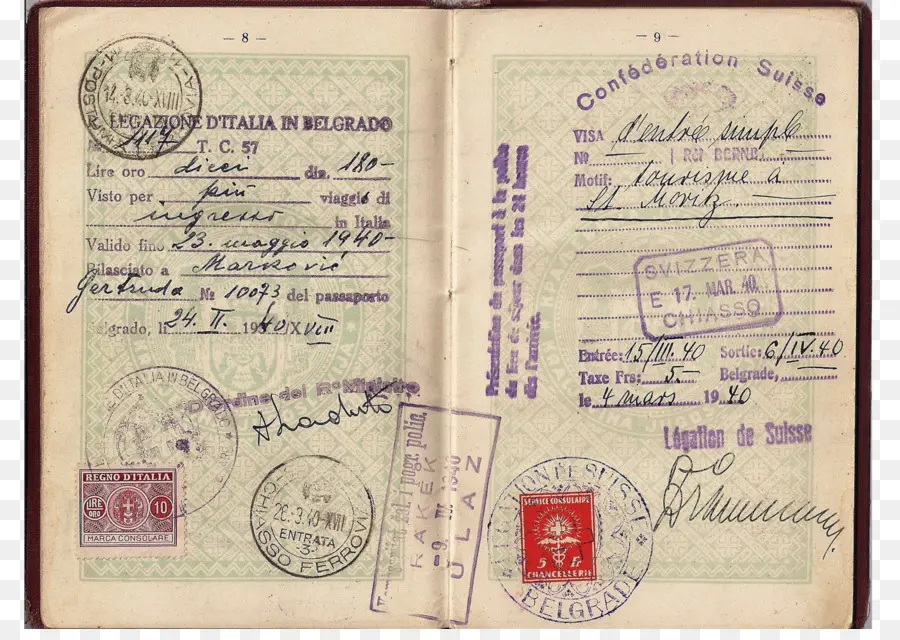 - 8 -
14.-3.40-XVIII
LEGAZIONE D'ITALIA IN BELGRADO
No 1117 T. C. 57
Lire oro dieci din. 180-
Visto per più viaggi di
ingresso in Italia
Valido fino 23. maggio 1940-
Rilasciato a Marković
Gertruda No 10073 del passaporto
Belgrado, li 24. II. 1940/XVIII
D'Ordine del Ro Ministro
E D'ITALIA IN BELGRADO
REGNO D'ITALIA
LIRE ORO 10
MARCA CONSOLARE
CHIASSO FERROVIA
26.-3.40-XVII
ENTRATA
-3-
pogr. polic.
RAKEK
-9. IV 1940
ULAZ
- 9 -
Confédération Suisse
VISA d'entrée simple
No BERNE
Motif: tourisme à
St. Moritz.
de l'arrivée.
SVIZZERA
E 17. MAR. 40.
CHIASSO
Entrée: 15/III. 40 Sortie: 6/IV. 40
Taxe Frs: 5.- Belgrade,
le 4 mars 1940
Légation de Suisse
LEGATION DE SUISSE
BELGRADE
SERVICE CONSULAIRE
5 Fr
CHANCELLERIE